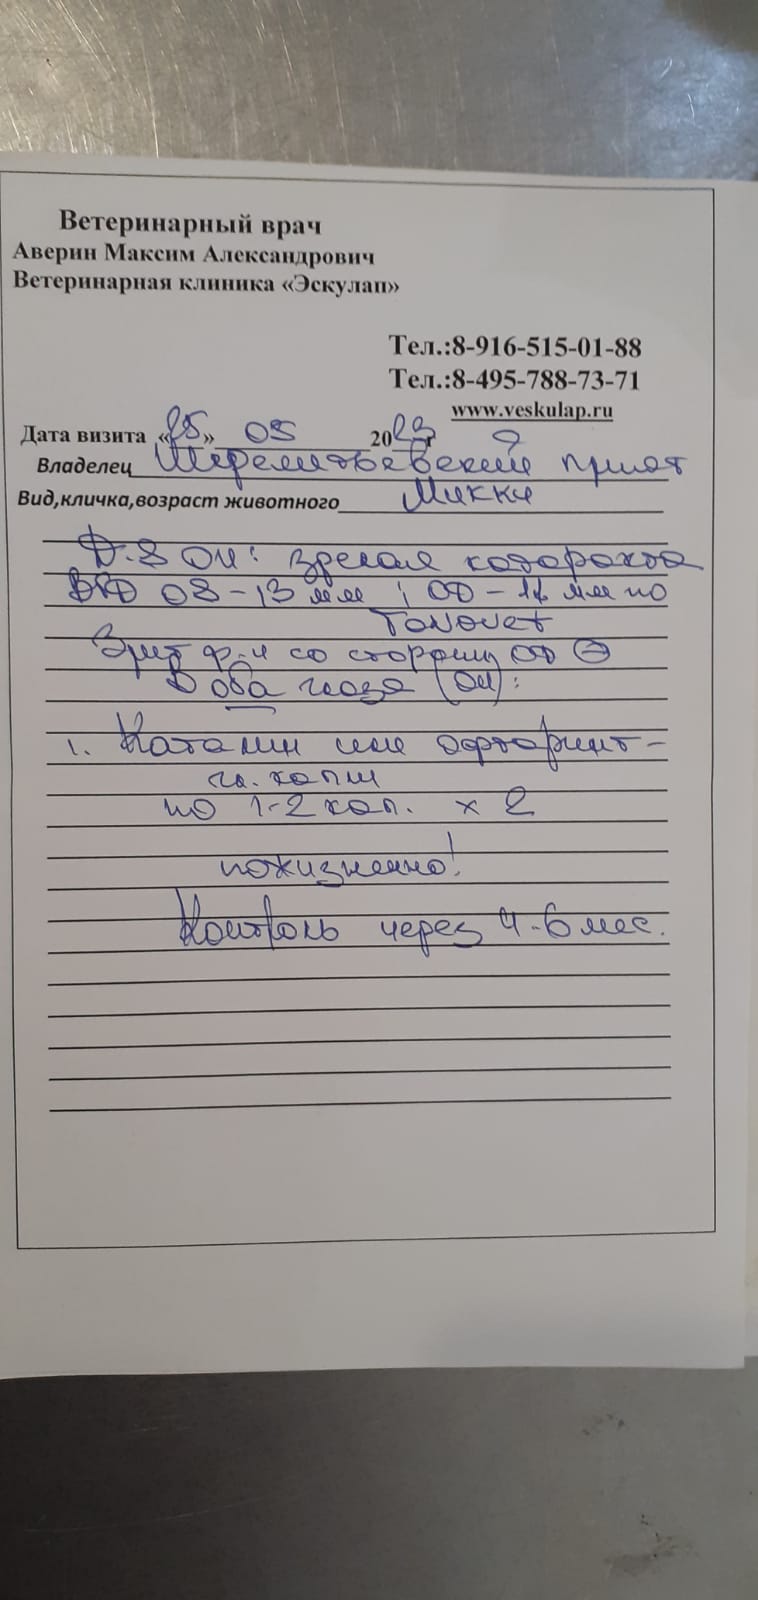 Ветеринарный врач
Аверин Максим Александрович
Ветеринарная клиника «Эскулап»
Тел.:8-916-515-01-88
Тел.:8-495-788-73-71
www.veskulap.ru
Дата визита «25» 05 2023г
Владелец Шереметьевский приют
Вид,кличка,возраст животного Микки
D.S OU: зрелая катаракта
ВГД OS - 13 мм ; OD - мм по
Tonovet
Зрит ф-и со стороны OD ⊖
В оба глаза (OU):
1. Каталин или офтаринт -
гл. капли
по 1-2 кап. х 2
пожизненно!
Контроль через 4-6 мес.